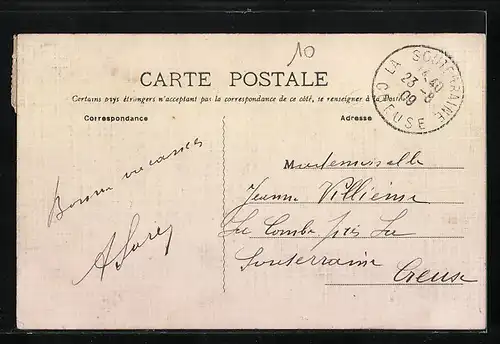 10
CARTE POSTALE
Certains pays étrangers n'acceptant pas la correspondance de ce côté, se renseigner à la Poste
LA SOUTERRAINE
4-40
23-8
09
CREUSE
Correspondance
Adresse
Bonnes vacances
Mademoiselle
Jeanne
La Combe près La
Souterraine
Creuse